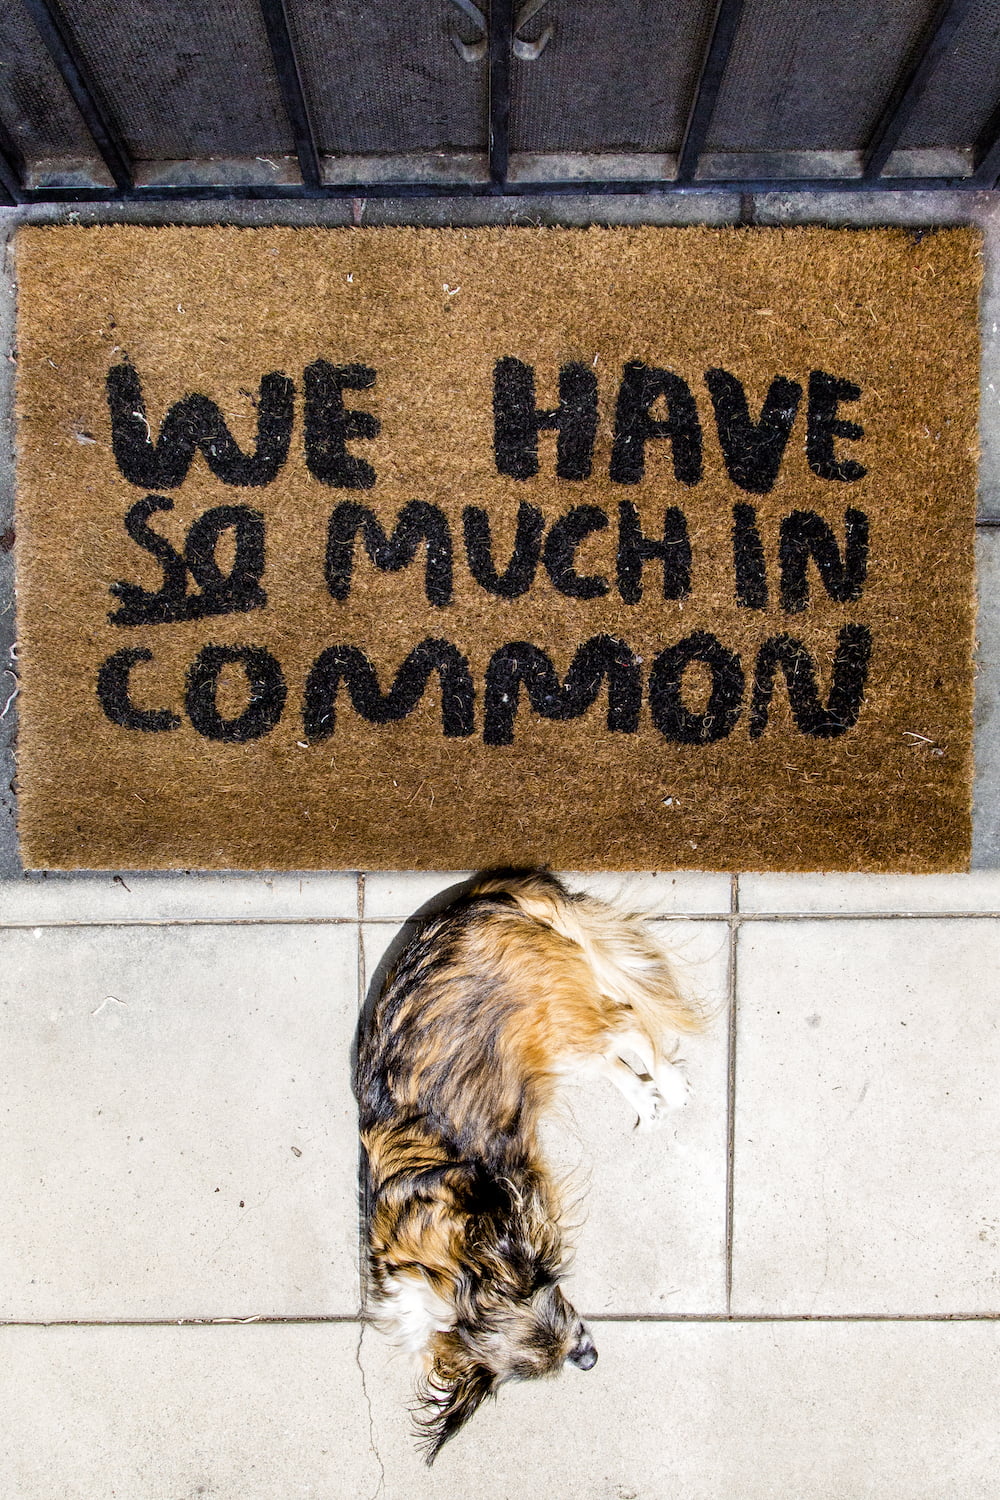 WE HAVE
SO MUCH IN
COMMON